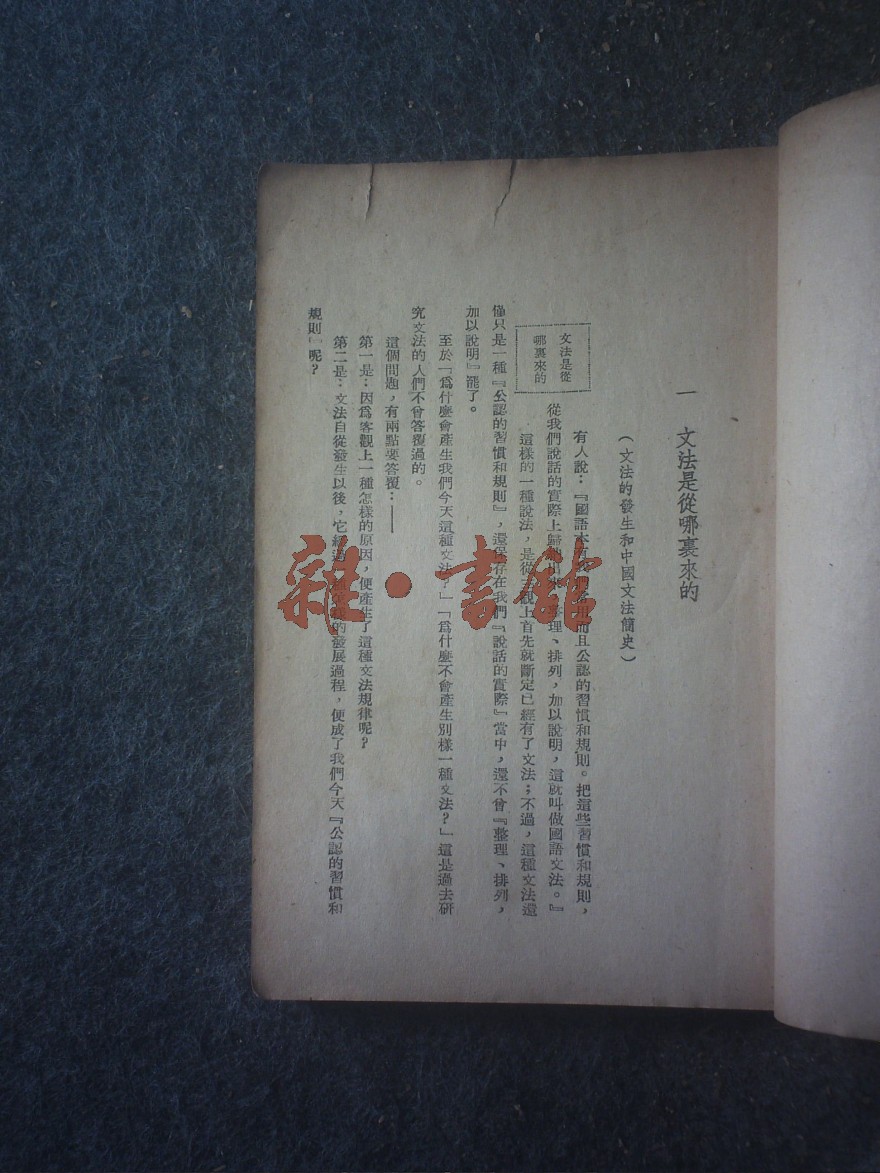 一　文法是從哪裏來的
（文法的發生和中國文法簡史）
文法是從
哪裏來的
有人說：『國語本有我們而且公認的習慣和規則。把這些習慣和規則，
從我們說話的實際上歸納出來、整理、排列，加以說明，這就叫做國語文法。』
這樣的一種說法，是從觀上首先就斷定已經有了文法；不過，這種文法還
僅只是一種『公認的習慣和規則』，還保存在我們『說話的實際』當中，還不曾『整理、排列，
加以說明』罷了。
至於「爲什麼會產生我們今天這種文法？」「爲什麼不會產生別樣一種文法？」這是過去研
究文法的人們不曾答覆過的。
這個問題，有兩點要答覆：——
第一是：因爲客觀上一種怎樣的原因，便產生了這種文法規律呢？
第二是：文法自從發生以後，它經過的發展過程，便成了我們今天『公認的習慣和
規則』呢？
雜·書館